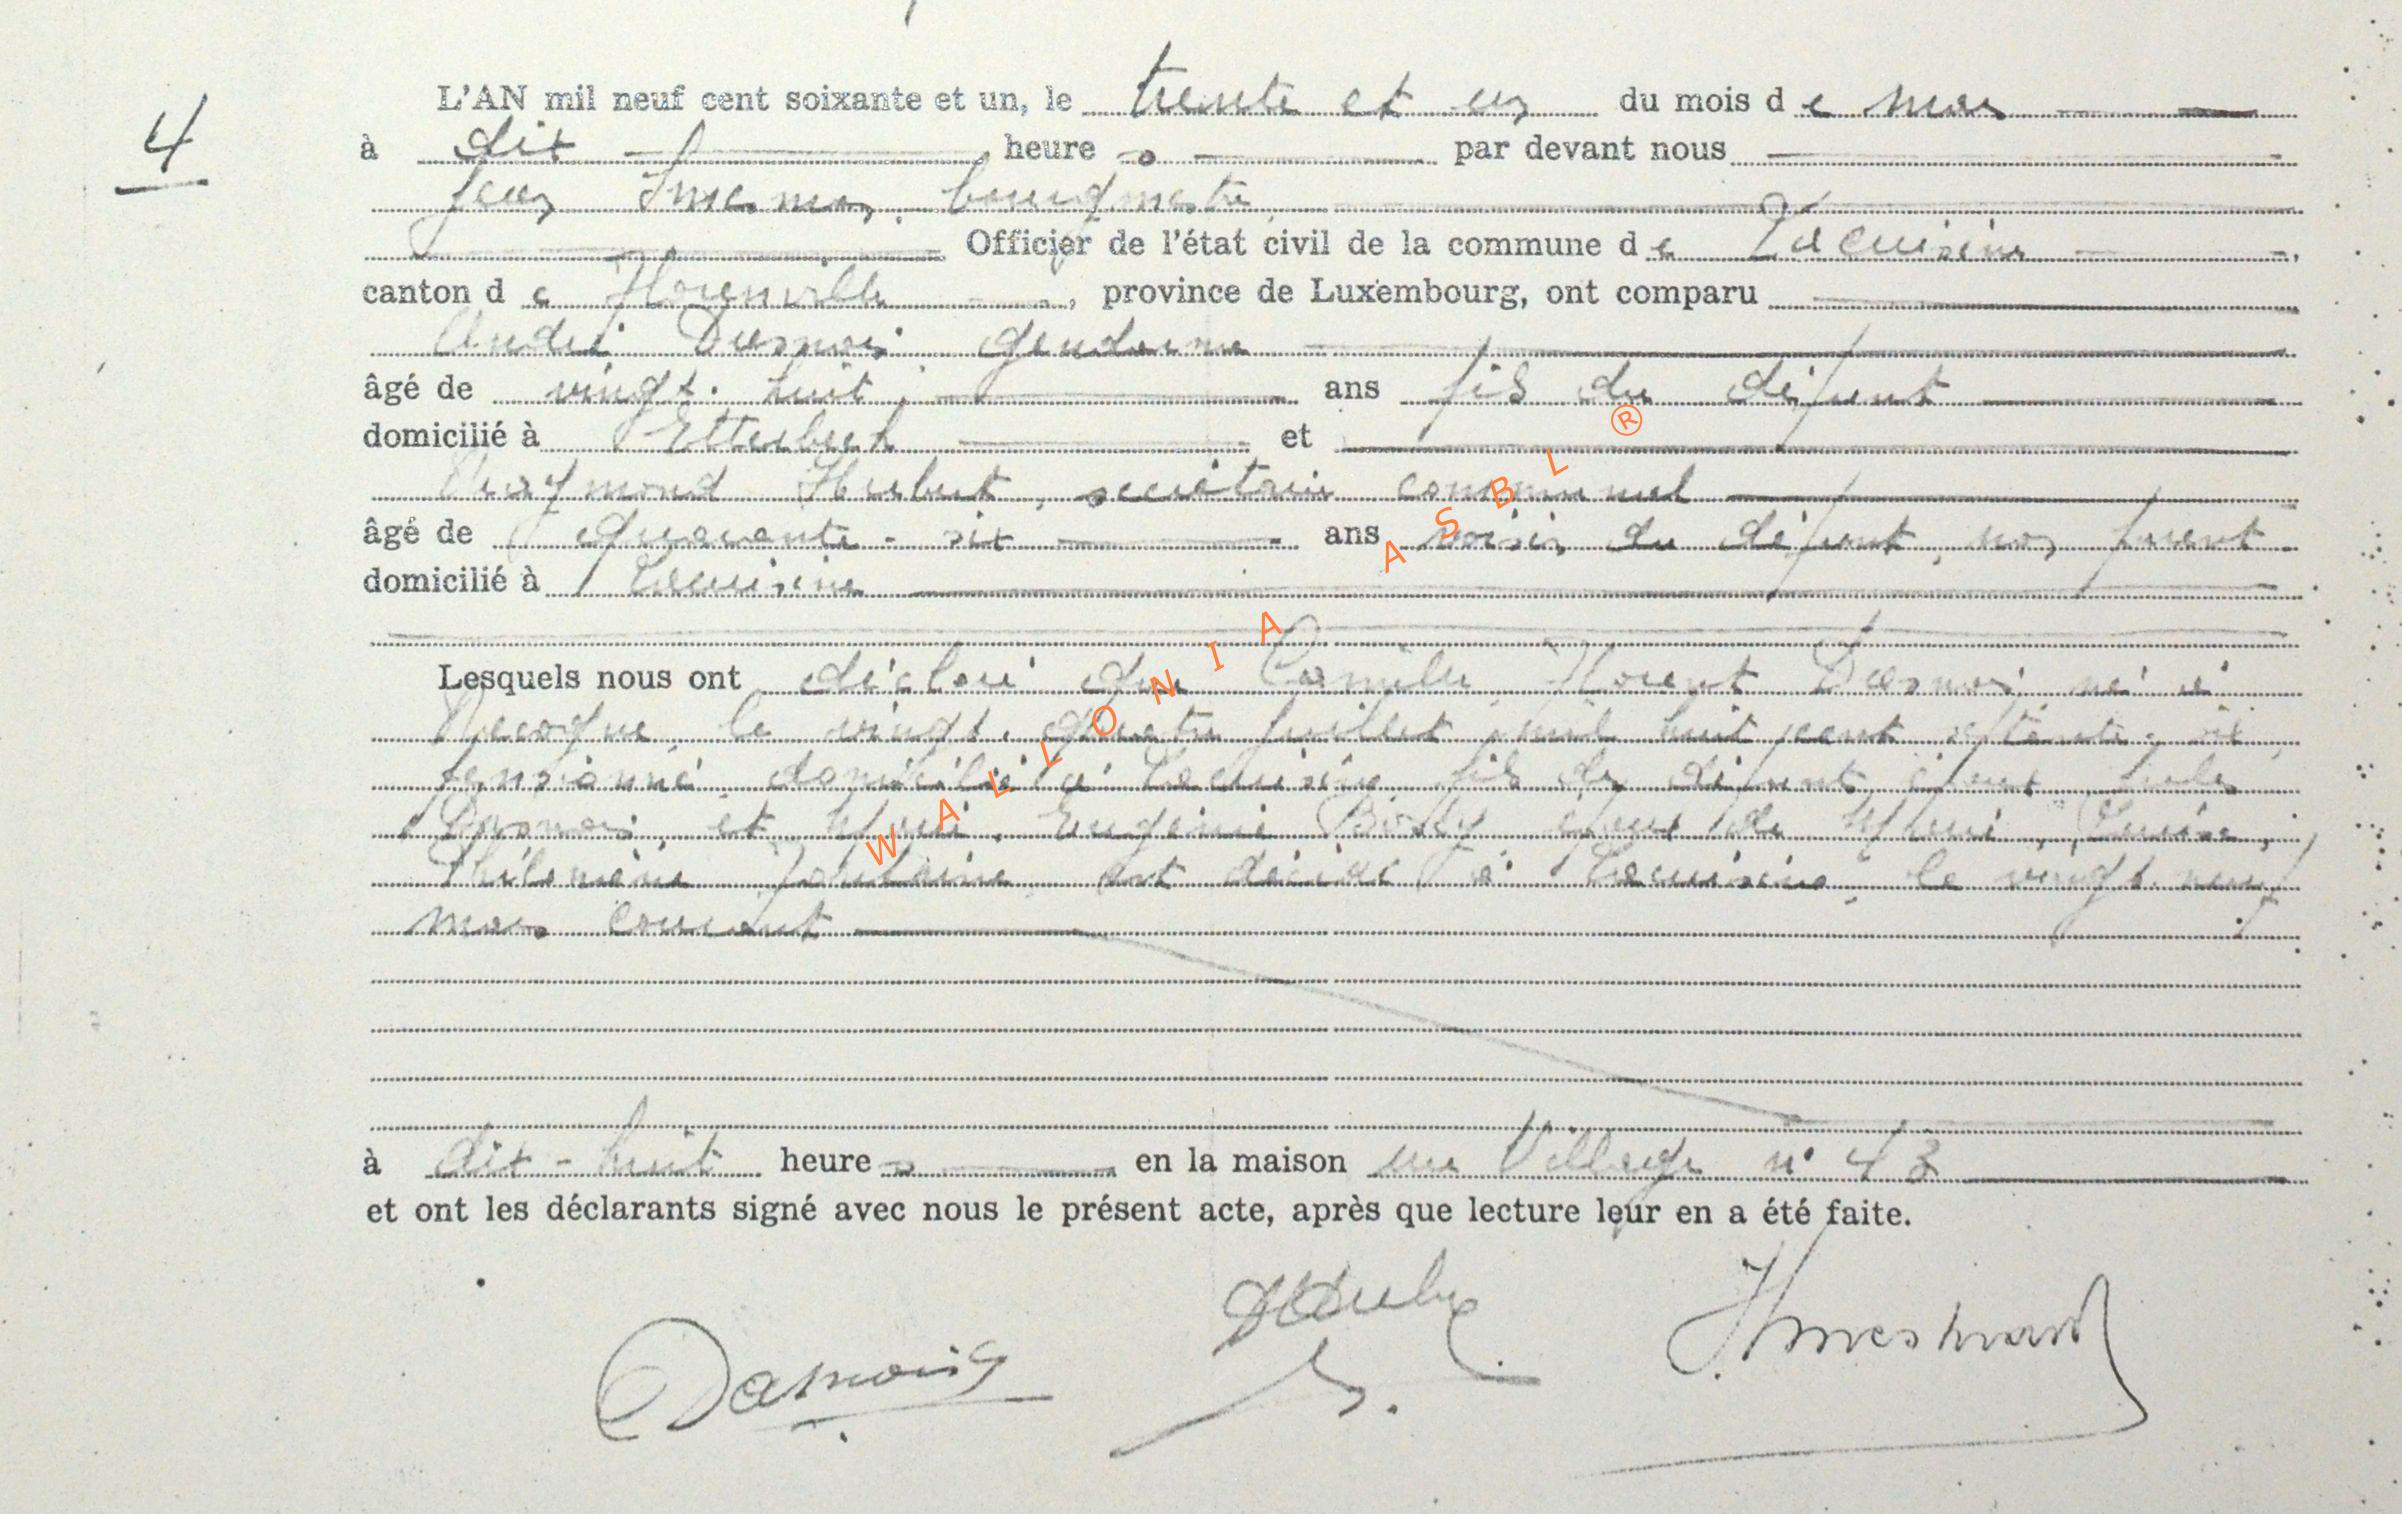 4
L'AN mil neuf cent soixante et un, le trente et un du mois de mars
à dix heures par devant nous
Jean bourgmestre
Officier de l'état civil de la commune de Lacuisine,
canton de Florenville, province de Luxembourg, ont comparu
André Dasnois gendarme
âgé de vingt-huit ans fils du défunt
domicilié à Etterbeek et
Raymond Hubert, secrétaire communal
âgé de quarante-six ans voisin du défunt, non parent
domicilié à Lacuisine
Lesquels nous ont déclaré que Camille, Florent Dasnois, né à
Recogne, le vingt-quatre juillet mil huit cent septante-six
pensionné, domicilié à Lacuisine, fils de défunts époux Jules
Dasnois, et Marie, Eugénie Bossy, époux de Marie, Louise,
Philomène Fontaine, est décédé à Lacuisine, le vingt-neuf
mars courant
à dix-huit heures en la maison rue Village n° 43
et ont les déclarants signé avec nous le présent acte, après que lecture leur en a été faite.
Dasnois
WALLONIA ASBL ®